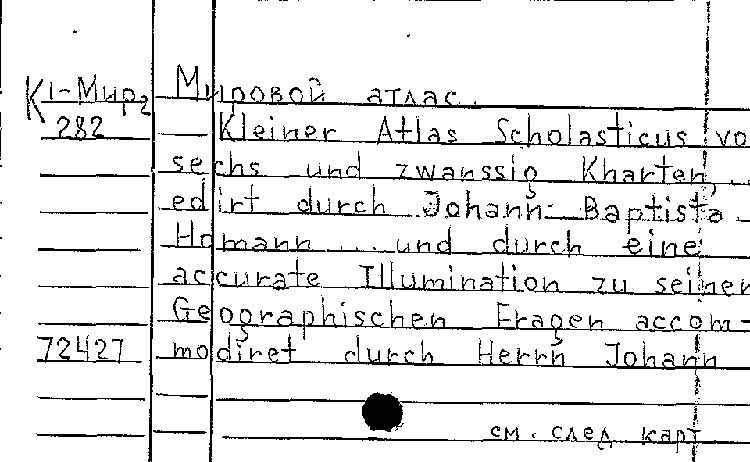 К1-Мир2 Мировой атлас.
282 Kleiner Atlas Scholasticus vo
sechs und zwanssig Kharten, ..
edirt durch Johann Baptista
Homann ... und durch eine
accurate Illumination zu seiner
Geographischen Fragen accom-
72427 modiret durch Herrn Johann
см. след карт